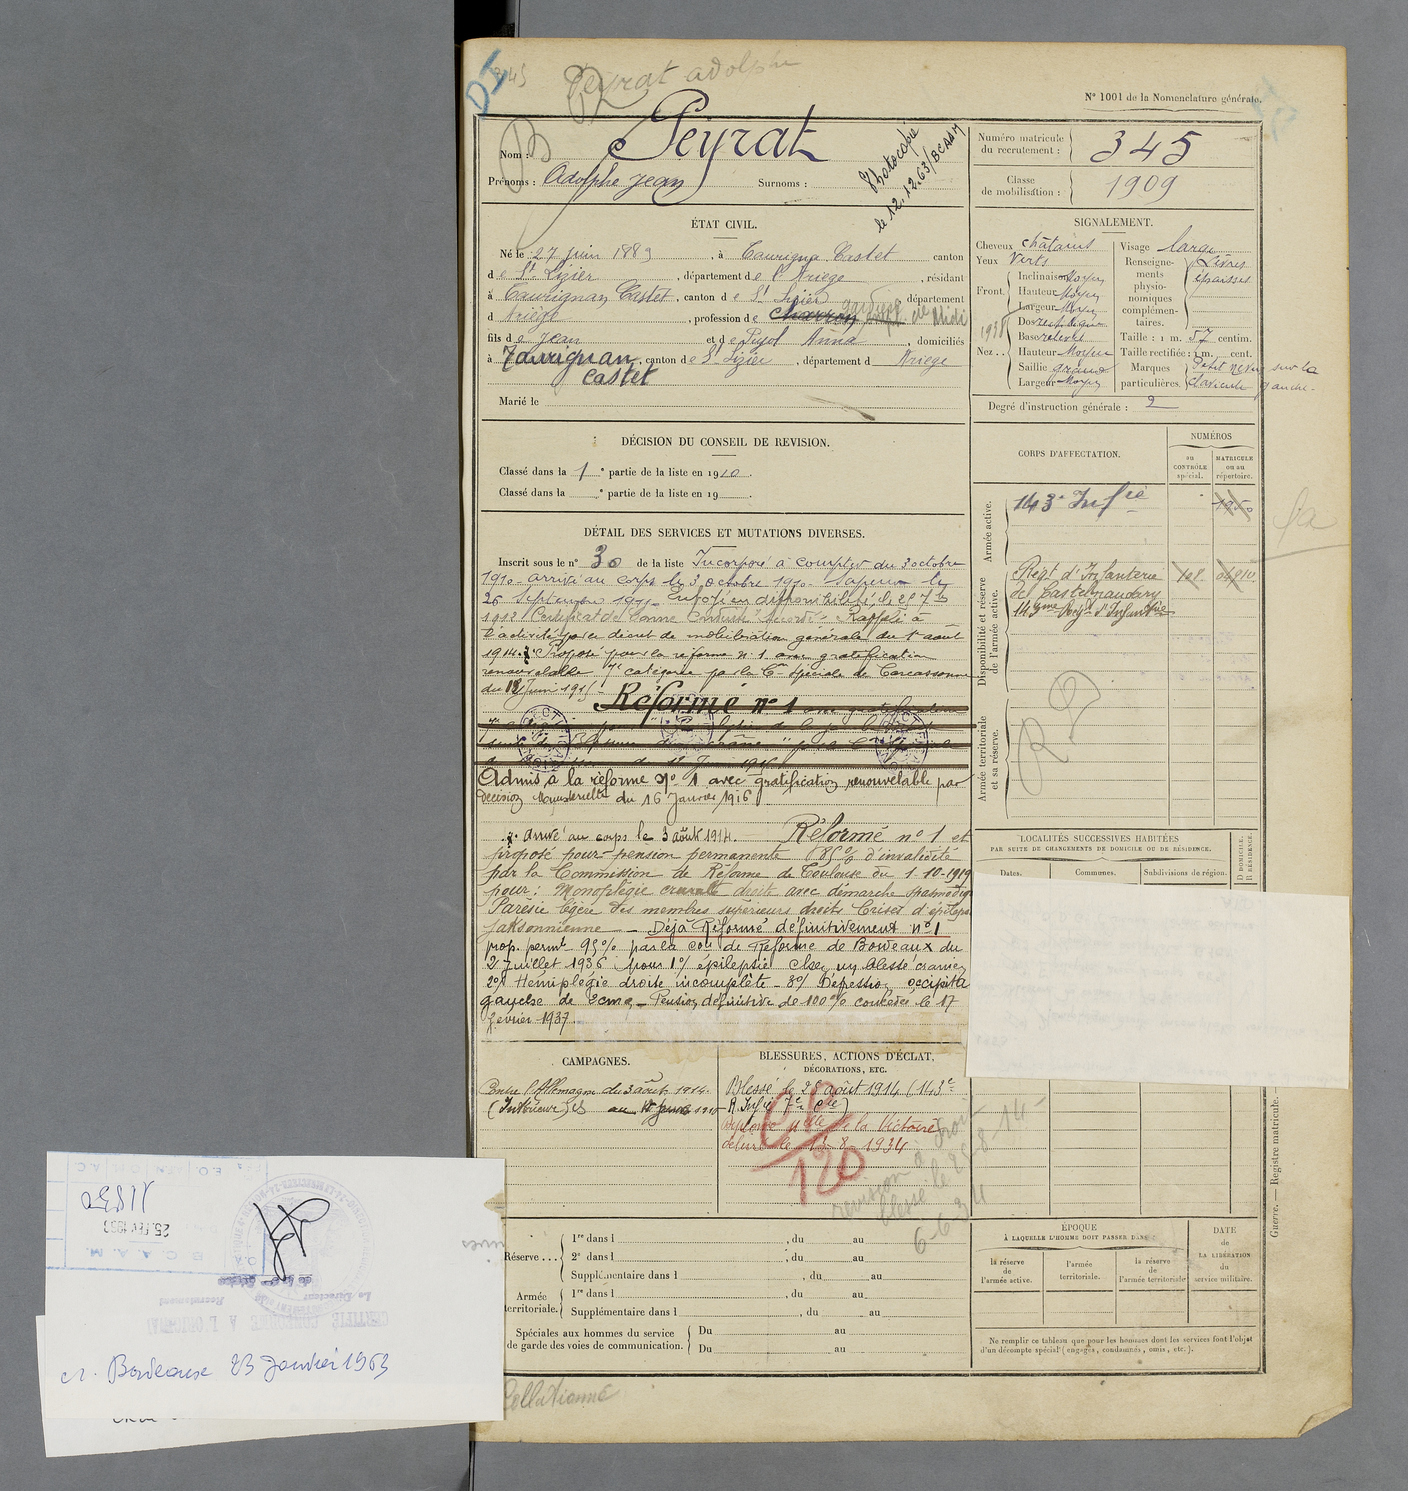 Peyrat adolphe
N° 1001 de la Nomenclature générale.
Nom : Peyrat
Prénoms : Adolphe Jean Surnoms :
Photocopié
le 12.12.63/BCAAM
Numéro matricule du recrutement : 345
Classe de mobilisation : 1909
ÉTAT CIVIL.
Né le 27 Juin 1889, à Taurignan Castet canton
de St Lizier, département de l'Ariege, résidant
à Taurignan Castet, canton de St Lizier département
d Ariège, profession de charron
fils de Jean et de Pujol Anna, domiciliés
à Taurignan Castet, canton de St Lizier, département d Ariege
Marié le
SIGNALEMENT.
Cheveux châtains
Yeux Verts
Front. Inclinaison Moyen
Hauteur Moyen
Largeur Moyen
Nez. Dos rect. sinueux
Base relevée
Hauteur Moyen
Saillie grand
Largeur Moyen
Visage large
Renseignements physionomiques complémentaires. Lèvres épaisses
Taille : 1 m. 57 centim.
Taille rectifiée : 1 m. cent.
Marques particulières. Petit nevus sur la clavicule gauche.
Degré d'instruction générale : 2
DÉCISION DU CONSEIL DE REVISION.
Classé dans la 1 e partie de la liste en 1910.
Classé dans la e partie de la liste en 19 .
CORPS D'AFFECTATION.
NUMÉROS
au CONTRÔLE spécial.
MATRICULE ou au répertoire.
Armée active.
143e Infie
Disponibilité et réserve de l'armée active.
Régt d'Infanterie
de Castelnaudary
143eme Régt d'Infanterie
Armée territoriale et sa réserve.
DÉTAIL DES SERVICES ET MUTATIONS DIVERSES.
Inscrit sous le n° 30 de la liste Incorporé à compter du 3 octobre
1910 arrivé au corps le 3 octobre 1910. Sapeur le
26 Septembre 1911. Envoyé en disponibilité le 25 7bre
1912 Certificat de bonne conduite accordé. Rappelé à
l'activité par décret de mobilisation générale du 1er août
1914. Proposé pour la réforme n° 1 avec gratification
renouvelable 7e catégorie par la Con spéciale de Carcassonne
du 18 Juin 1915. Réformé n° 1 avec gratification
Admis à la réforme No 1 avec gratification renouvelable par
décision Ministérielle du 16 Janvier 1916
Arrivé au corps le 3 août 1914. Réformé n° 1 et
proposé pour pension permanente 85% d'invalidité
par la Commission de Réforme de Toulouse du 1-10-1919
pour : Monoplégie crurale droit avec démarche spasmodique
Parésie légère des membres supérieurs droits Crises d'épilepsie
jaksonnienne - Déjà Réformé définitivement n°1
prop. permte 95% par la con de Réforme de Bordeaux du
2 Juillet 1936 pour 1°/ épilepsie chez un blessé cranien
2°/ Hémiplégie droite incomplète - 3°/ Dépression occipital
gauche de 2cmq - Pension définitive de 100% concédée le 17
février 1937
LOCALITÉS SUCCESSIVES HABITÉES
PAR SUITE DE CHANGEMENTS DE DOMICILE OU DE RÉSIDENCE.
Dates. Communes. Subdivisions de région. D DOMICILE. R RÉSIDENCE.
CAMPAGNES.
Contre l'Allemagne du 3 août 1914
(Intérieur)
BLESSURES, ACTIONS D'ÉCLAT,
DÉCORATIONS, ETC.
Blessé le 25 août 1914 (143e
R. Infie 7e Cie)
de la Victoire
délivré le 13-8-1934
CP
120
blessé le 25-8-14
6-6-34
Réserve... 1re dans l , du au
2e dans l , du au
Supplémentaire dans l , du au
Armée territoriale. 1re dans l , du au
Supplémentaire dans l , du au
Spéciales aux hommes du service de garde des voies de communication. Du au
Du au
ÉPOQUE
À LAQUELLE L'HOMME DOIT PASSER DANS :
la réserve de l'armée active.
l'armée territoriale.
la réserve de l'armée territoriale
DATE DE LA LIBÉRATION du service militaire.
Ne remplir ce tableau que pour les hommes dont les services font l'objet
d'un décompte spécial (engagés, condamnés, omis, etc.).
Guerre. — Registre matricule.
Collationné
B.C.A.A.M.
25. FEV 1963
Le Directeur
Recrutement
CERTIFIÉ CONFORME A L'ORIGINAL
Bordeaux 23 Janvier 1963